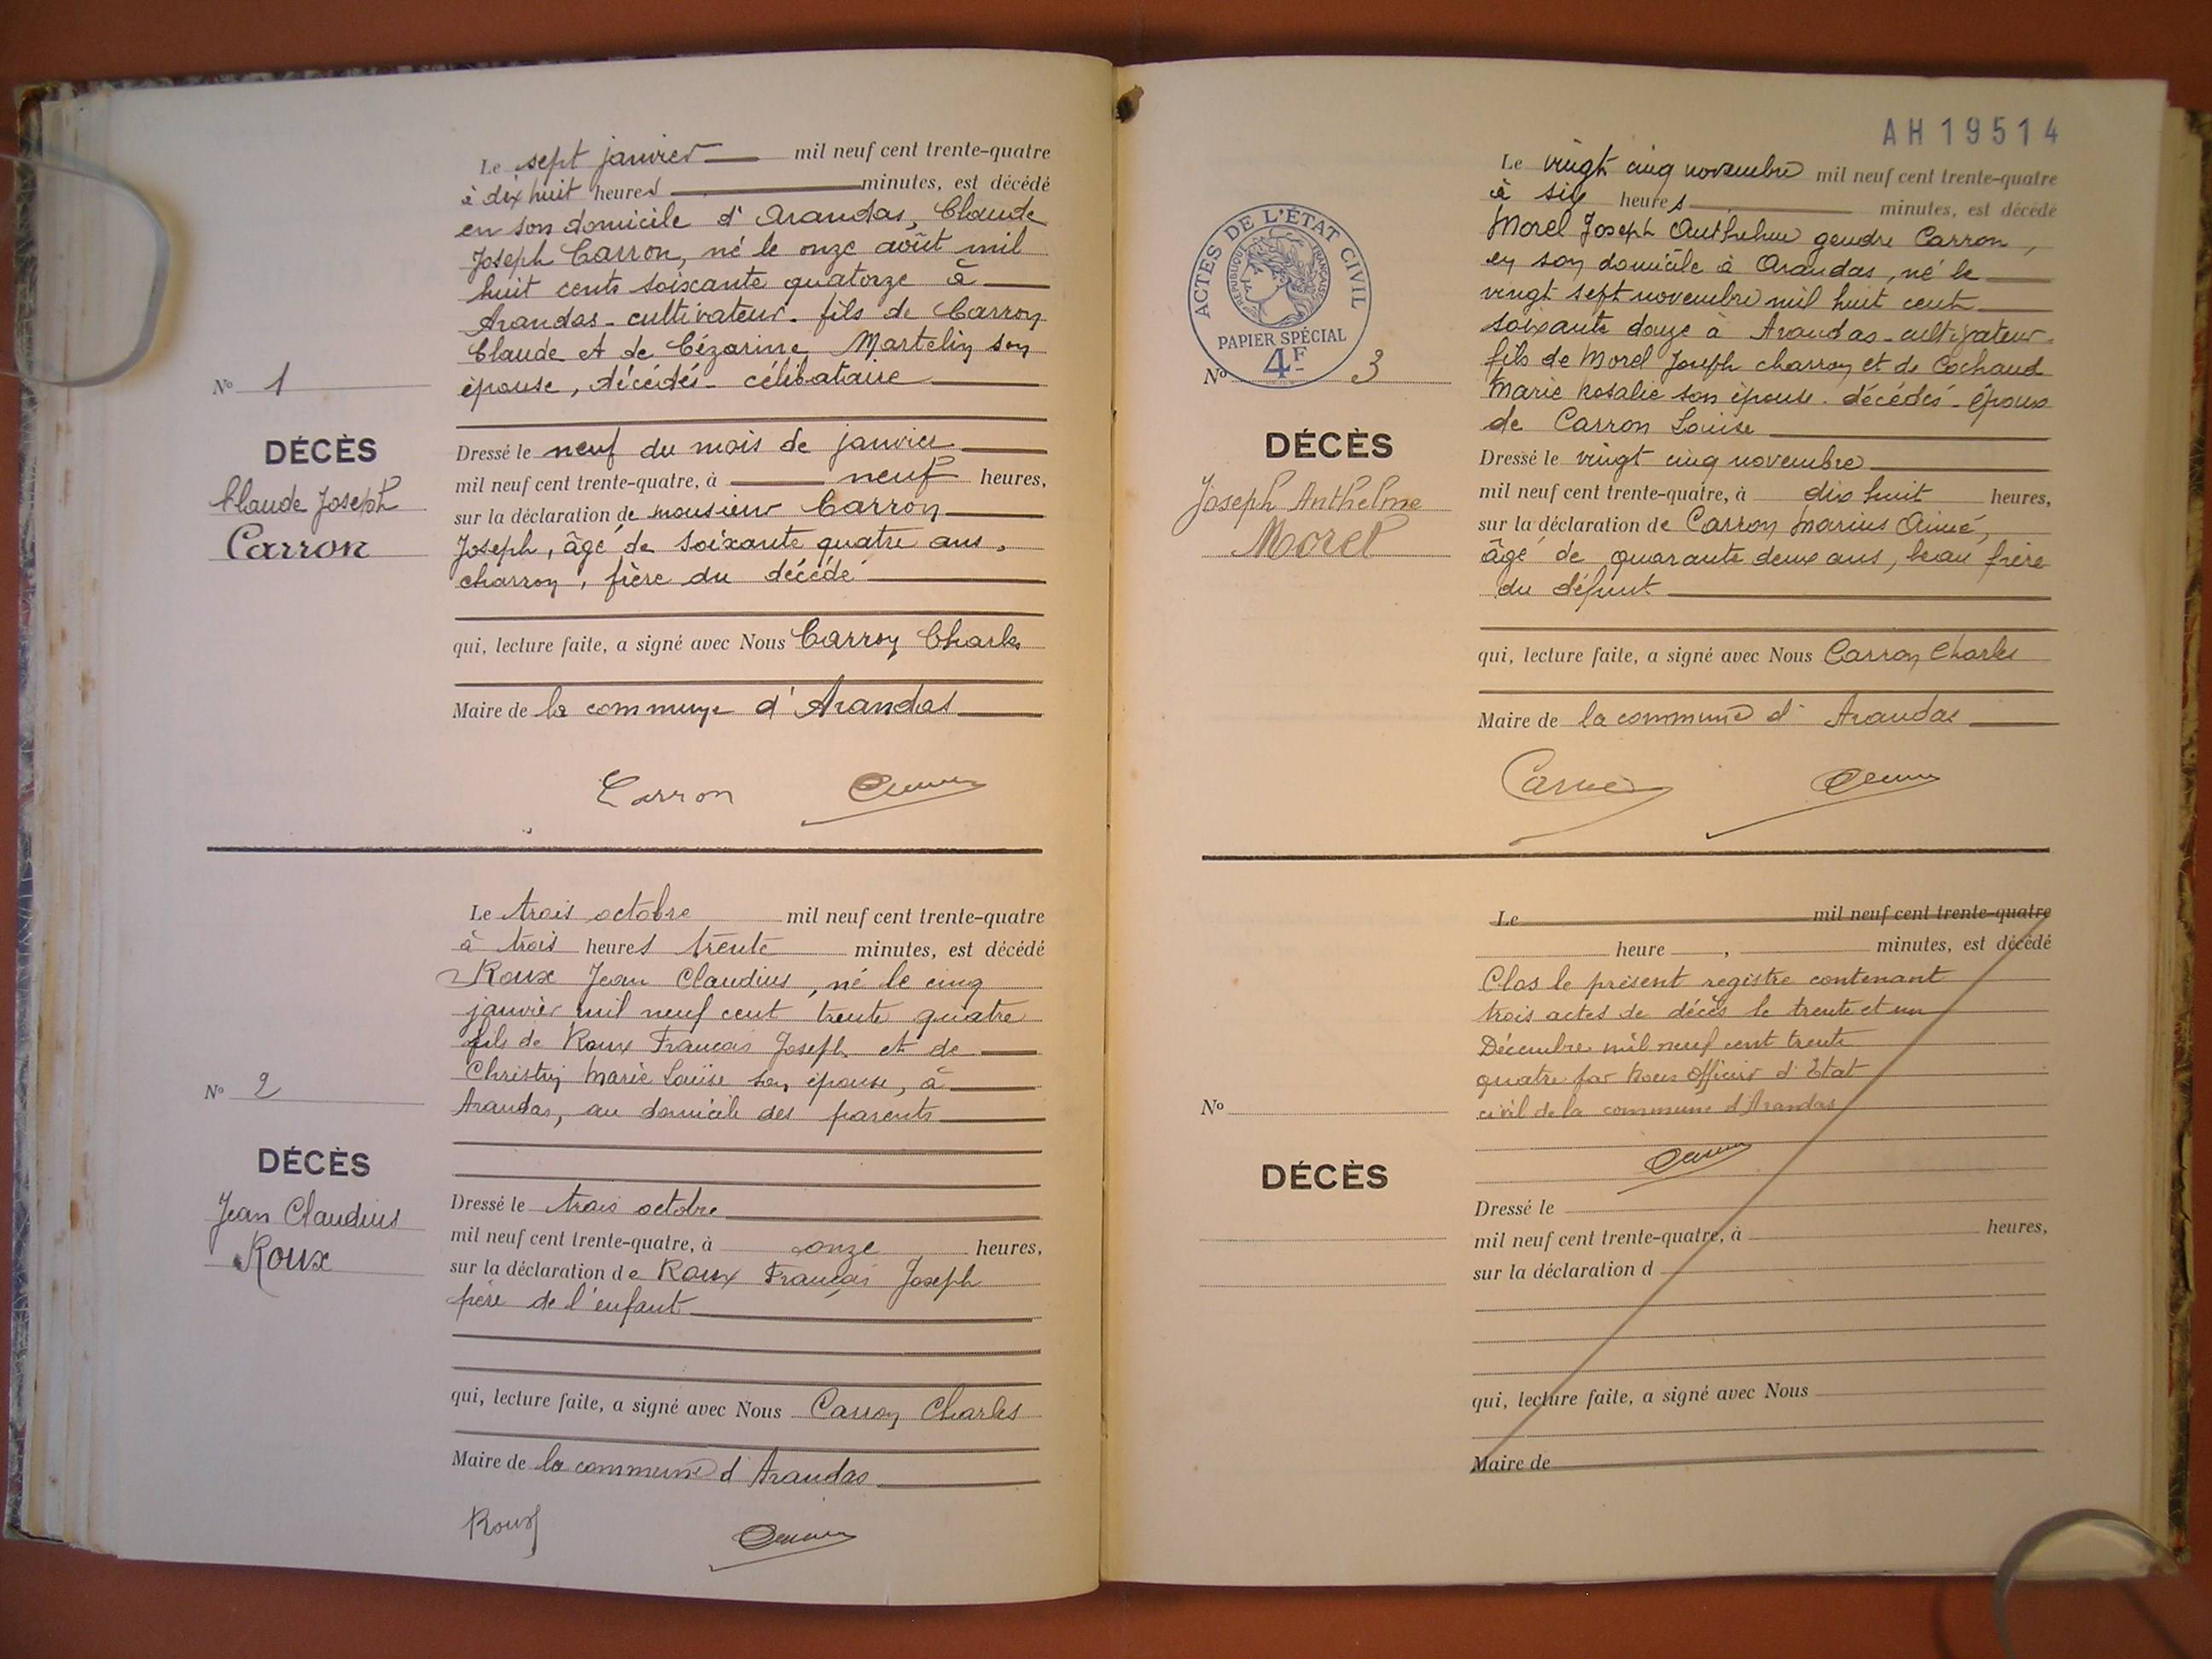 Le sept janvier mil neuf cent trente-quatre
à dix huit heures minutes, est décédé
en son domicile d'Arandas, Claude
Joseph Carron, né le onze août mil
huit cents soixante quatorze à
Arandas - cultivateur - fils de Carron
Claude et de Cézarine Martelin son
épouse, décédés - célibataire
Nº 1
DÉCÈS
Claude Joseph
Carron
Dressé le neuf du mois de janvier
mil neuf cent trente-quatre, à neuf heures,
sur la déclaration de monsieur Carron
Joseph, âgé de soixante quatre ans,
charron, frère du décédé
qui, lecture faite, a signé avec Nous Carron Charles
Maire de la commune d'Arandas
Carron
Le trois octobre mil neuf cent trente-quatre
à trois heures trente minutes, est décédé
Roux Jean Claudius, né le cinq
janvier mil neuf cent trente quatre
fils de Roux Francois Joseph et de
Christin Marie Louise son épouse, à
Arandas, au domicile des parents
Nº 2
DÉCÈS
Jean Claudius
Roux
Dressé le trois octobre
mil neuf cent trente-quatre, à onze heures,
sur la déclaration de Roux Français Joseph
père de l'enfant
qui, lecture faite, a signé avec Nous Carron Charles
Maire de la commune d'Arandas
Roux
AH 19514
Le vingt cinq novembre mil neuf cent trente-quatre
à six heures minutes, est décédé
Morel Joseph Anthelme gendre Carron,
en son domicile à Arandas, né le
vingt sept novembre mil huit cent
soixante douze à Arandas - cultivateur -
fils de Morel Joseph charron et de Cochaud
Marie Rosalie son épouse - décédés - époux
de Carron Louise
ACTES DE L'ÉTAT CIVIL
RÉPUBLIQUE FRANÇAISE
PAPIER SPÉCIAL
4F
Nº 3
DÉCÈS
Joseph Anthelme
Morel
Dressé le vingt cinq novembre
mil neuf cent trente-quatre, à dix huit heures,
sur la déclaration de Carron Marius Aimé,
âgé de quarante deux ans, beau frère
du défunt
qui, lecture faite, a signé avec Nous Carron Charles
Maire de la commune d'Arandas
Le mil neuf cent trente-quatre
heure , minutes, est décédé
Clos le présent registre contenant
trois actes de décès le trente et un
Décembre mil neuf cent trente
quatre par Nous Officier d'Etat
civil de la commune d'Arandas
Nº
DÉCÈS
Dressé le
mil neuf cent trente-quatre, à heures,
sur la déclaration d
qui, lecture faite, a signé avec Nous
Maire de